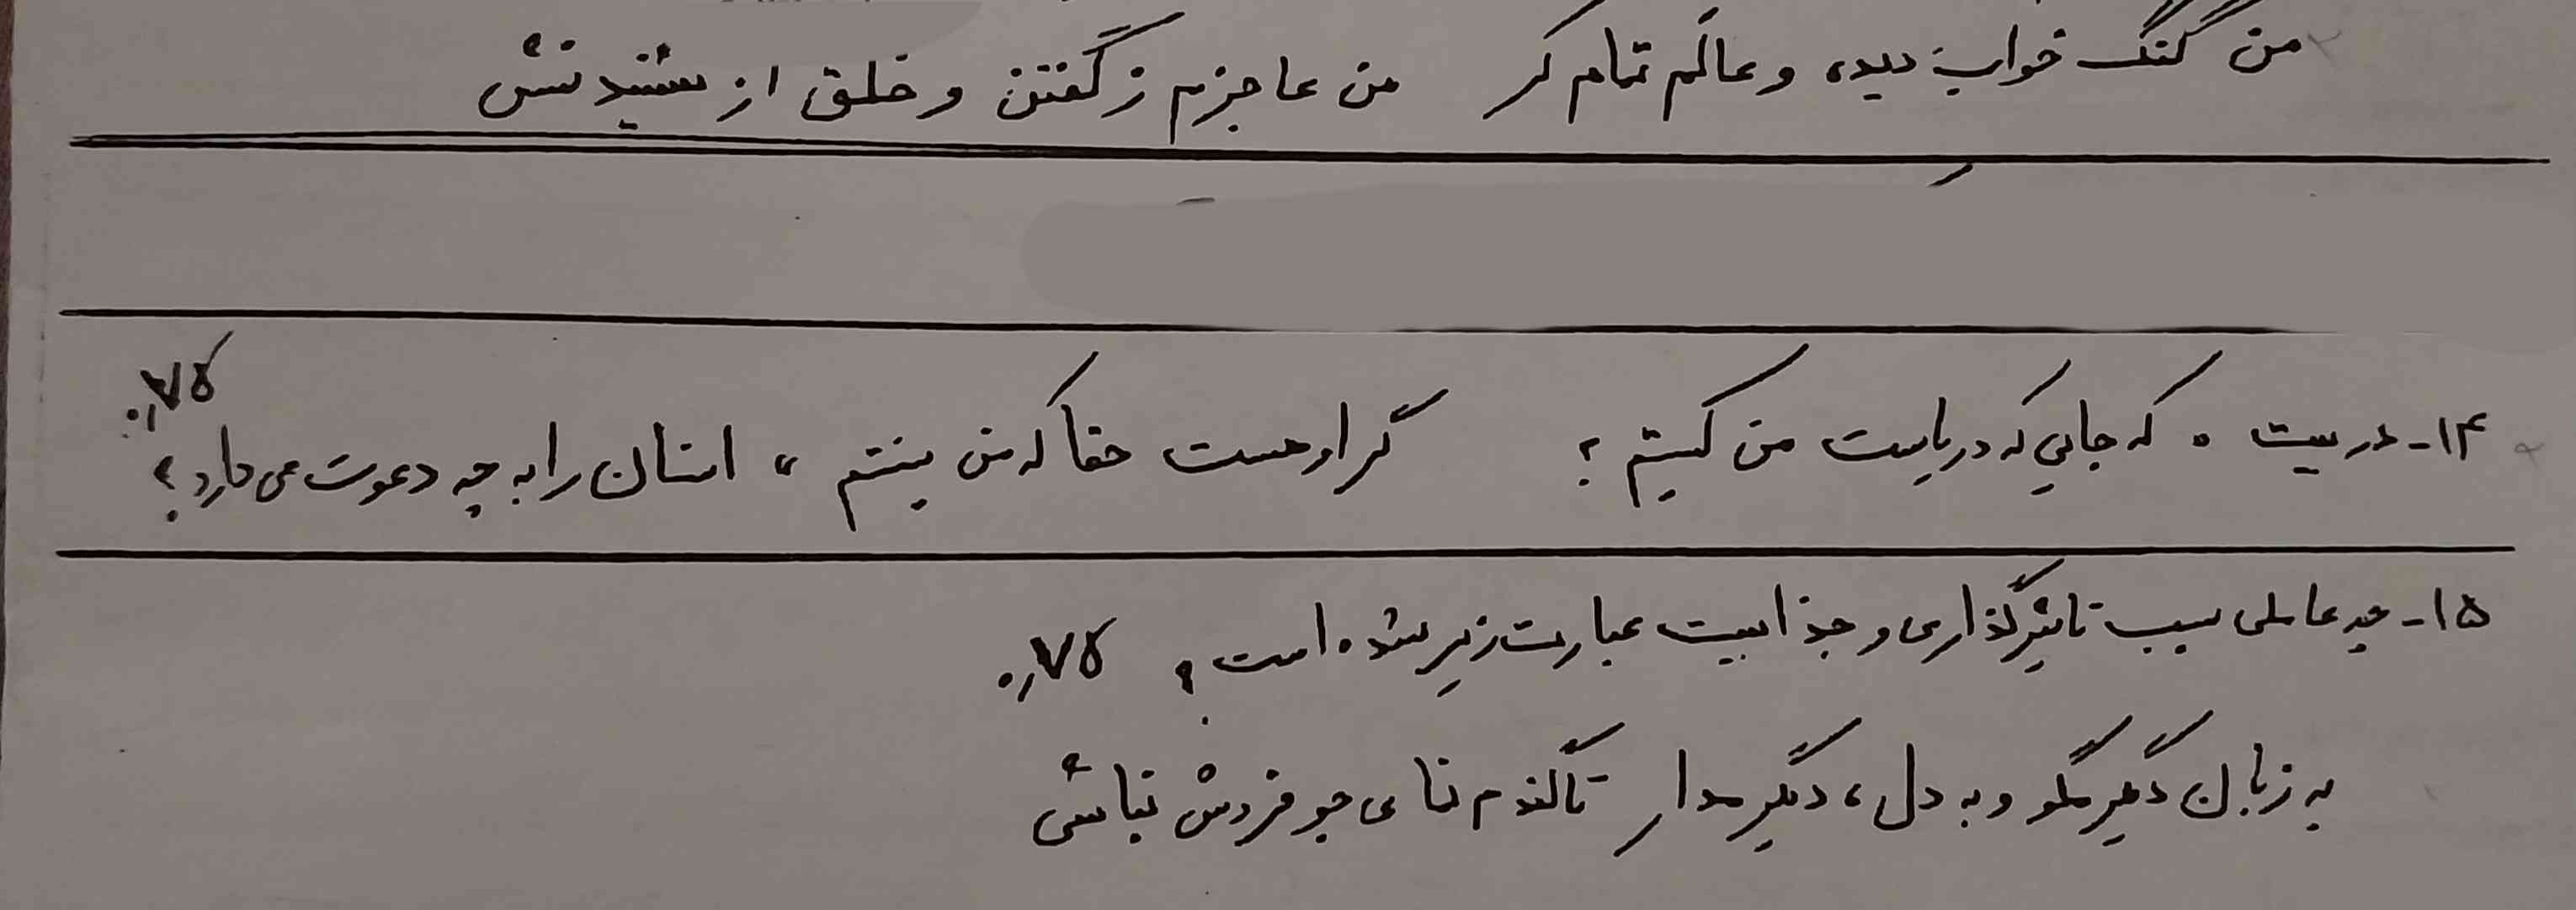 من گنگ خواب دیده و عالَم تمام کر من عاجزم ز گفتن و خلق از شنیدنش
۱۴- در بیت « که جایی که دریاست من کیستم ؟ گر او هست حقا که من نیستم » انسان را به چه دعوت می دارد ؟ ۰,۷۵
۱۵- چه عاملی سبب تاثیرگذاری و جذابیت عبارت زیر شده است ؟ ۰,۷۵
به زبان دگر مگو و به دل ، دگر مدار تا گندم نمای جو فروش نباشی